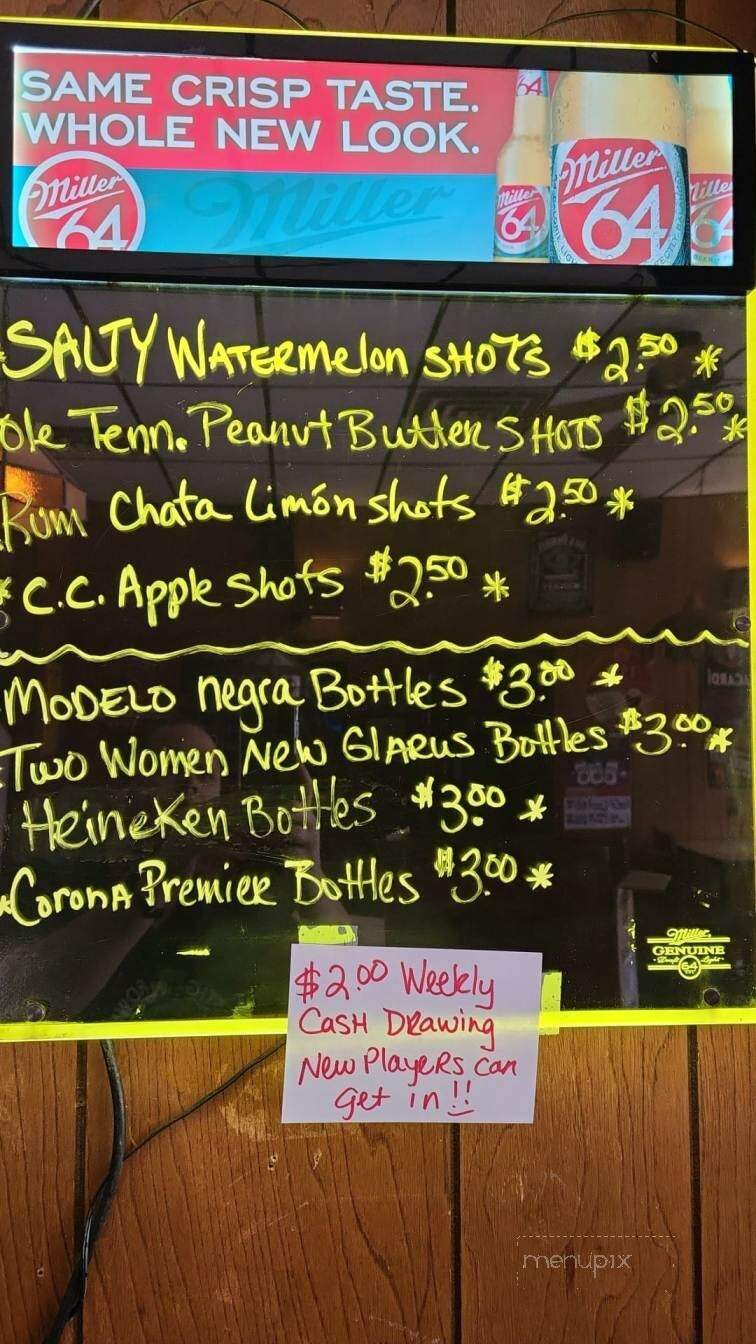 SAME CRISP TASTE.
WHOLE NEW LOOK.
Miller
64
Miller
64
Miller
64
Miller
64
Miller
64
SALTY WATERMelon SHOTS $2.50 *
Ole Tenn. Peanut Butter SHOTS $2.50 *
Rum Chata Limón shots $2.50 *
* C.C. Apple shots $2.50 *
MODELO negra Bottles $3.00 *
Two Women New GLARUS Bottles $3.00 *
HeineKen Bottles $3.00 *
*CoronA Premier Bottles $3.00 *
Miller
GENUINE
Draft Light
64
$2.00 Weekly
CASH DRAWING
New PlayeRs can
get in!!
menupix